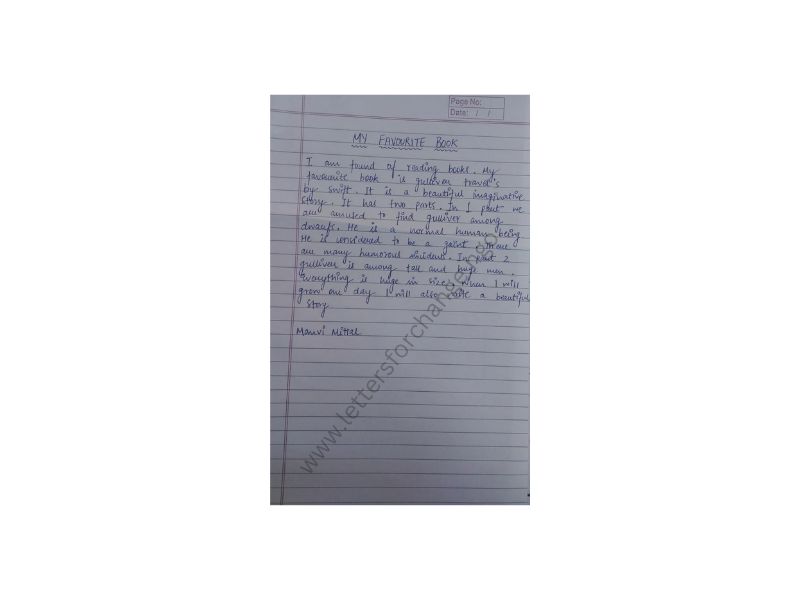 Page No:
Date: / /
MY FAVOURITE BOOK
I am found of reading books. My
favourite book is gulliver travel's
by swift. It is a beautiful imaginative
story. It has two parts. In I part we
are amused to find gulliver among
dwarfs. He is a normal human being
He is considered to be a gaint. There
are many humorous incidents. In part 2
gulliver is among tall and huge men.
Everything is huge in size. When I will
grow one day I will also write a beautiful
story
Manvi Mittal
www.lettersforchange.ngo